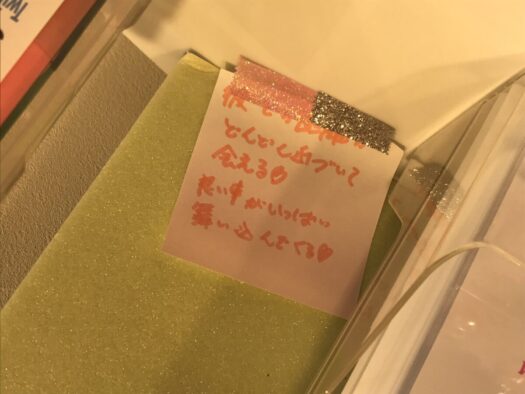 どんどん近づいて
会える♡
想い事がいっぱい
舞い込んでくる♥
Twi